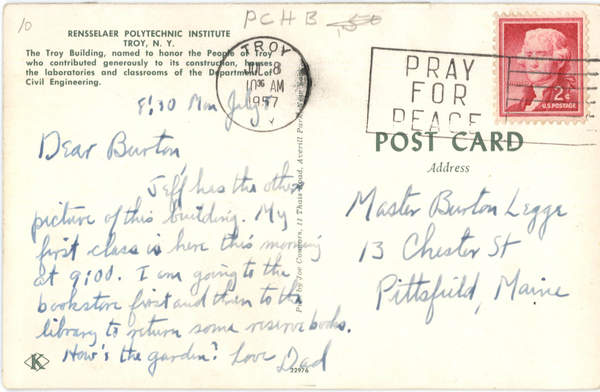 10
PCHB
RENSSELAER POLYTECHNIC INSTITUTE
TROY, N. Y.
The Troy Building, named to honor the People of Troy
who contributed generously to its construction, houses
the laboratories and classrooms of the Department of
Civil Engineering.
TROY
JUL 8
10 AM
1957
N.Y.
PRAY
FOR
PEACE
2¢
U.S. POSTAGE
8:30 Mon July 8
Dear Burton,
Jeff has the other
picture of this building. My
first class is here this morning
at 9:00. I am going to the
bookstore first and then to the
library to return some reserve books.
How's the garden? Love Dad
POST CARD
Address
Master Burton Legge
13 Chester St
Pittsfield, Maine
Pub. by Joe Connors, 11 Thais Road, Averill Park, New York
K
22976